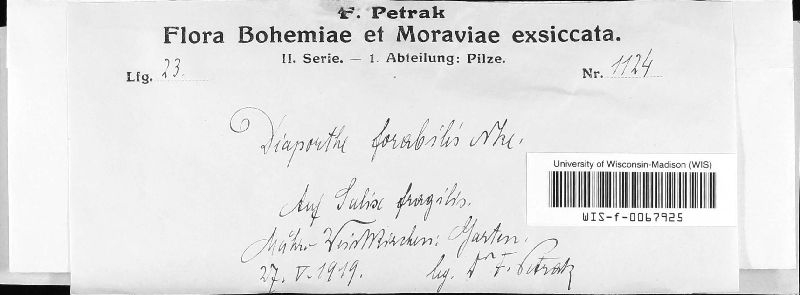 F. Petrak
Flora Bohemiae et Moraviae exsiccata.
II. Serie. — 1. Abteilung: Pilze.
Lfg. 23.
Nr. 1124
Diaporthe forabilis Nke.
University of Wisconsin-Madison (WIS)
WIS-f-0067925
Auf Salix fragilis.
Mähr. Weisskirchen: Garten.
27. V. 1919. leg. Dr F. Petrak